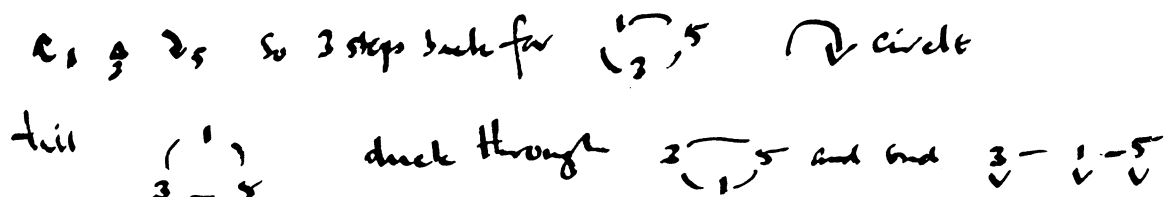 1 3 5 So 3 steps back for 1 5 3 circle
till 1 3 5 duck through 3 5 1 and end 3 - 1 - 5